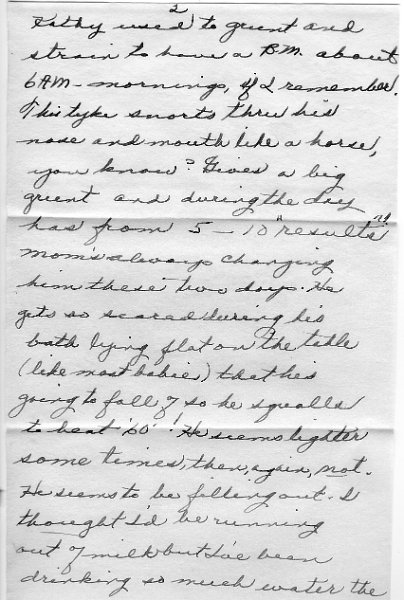 2
Kathy used to grunt and
strain to have a B.M. about
6 AM - mornings, if I remember.
This tyke snorts thru his
nose and mouth like a horse,
you know? Gives a big
grunt and during the day
has from 5 - 10 "results"
mom's always changing
him these two days. He
gets so scared during his
bath lying flat on the table
(like most babies) that his
going to fall & so he squalls
to beat 60! He seems lighter
some times, then, again, not.
He seems to be filling out. I
thought I'd be running
out of milk but I've been
drinking so much water the